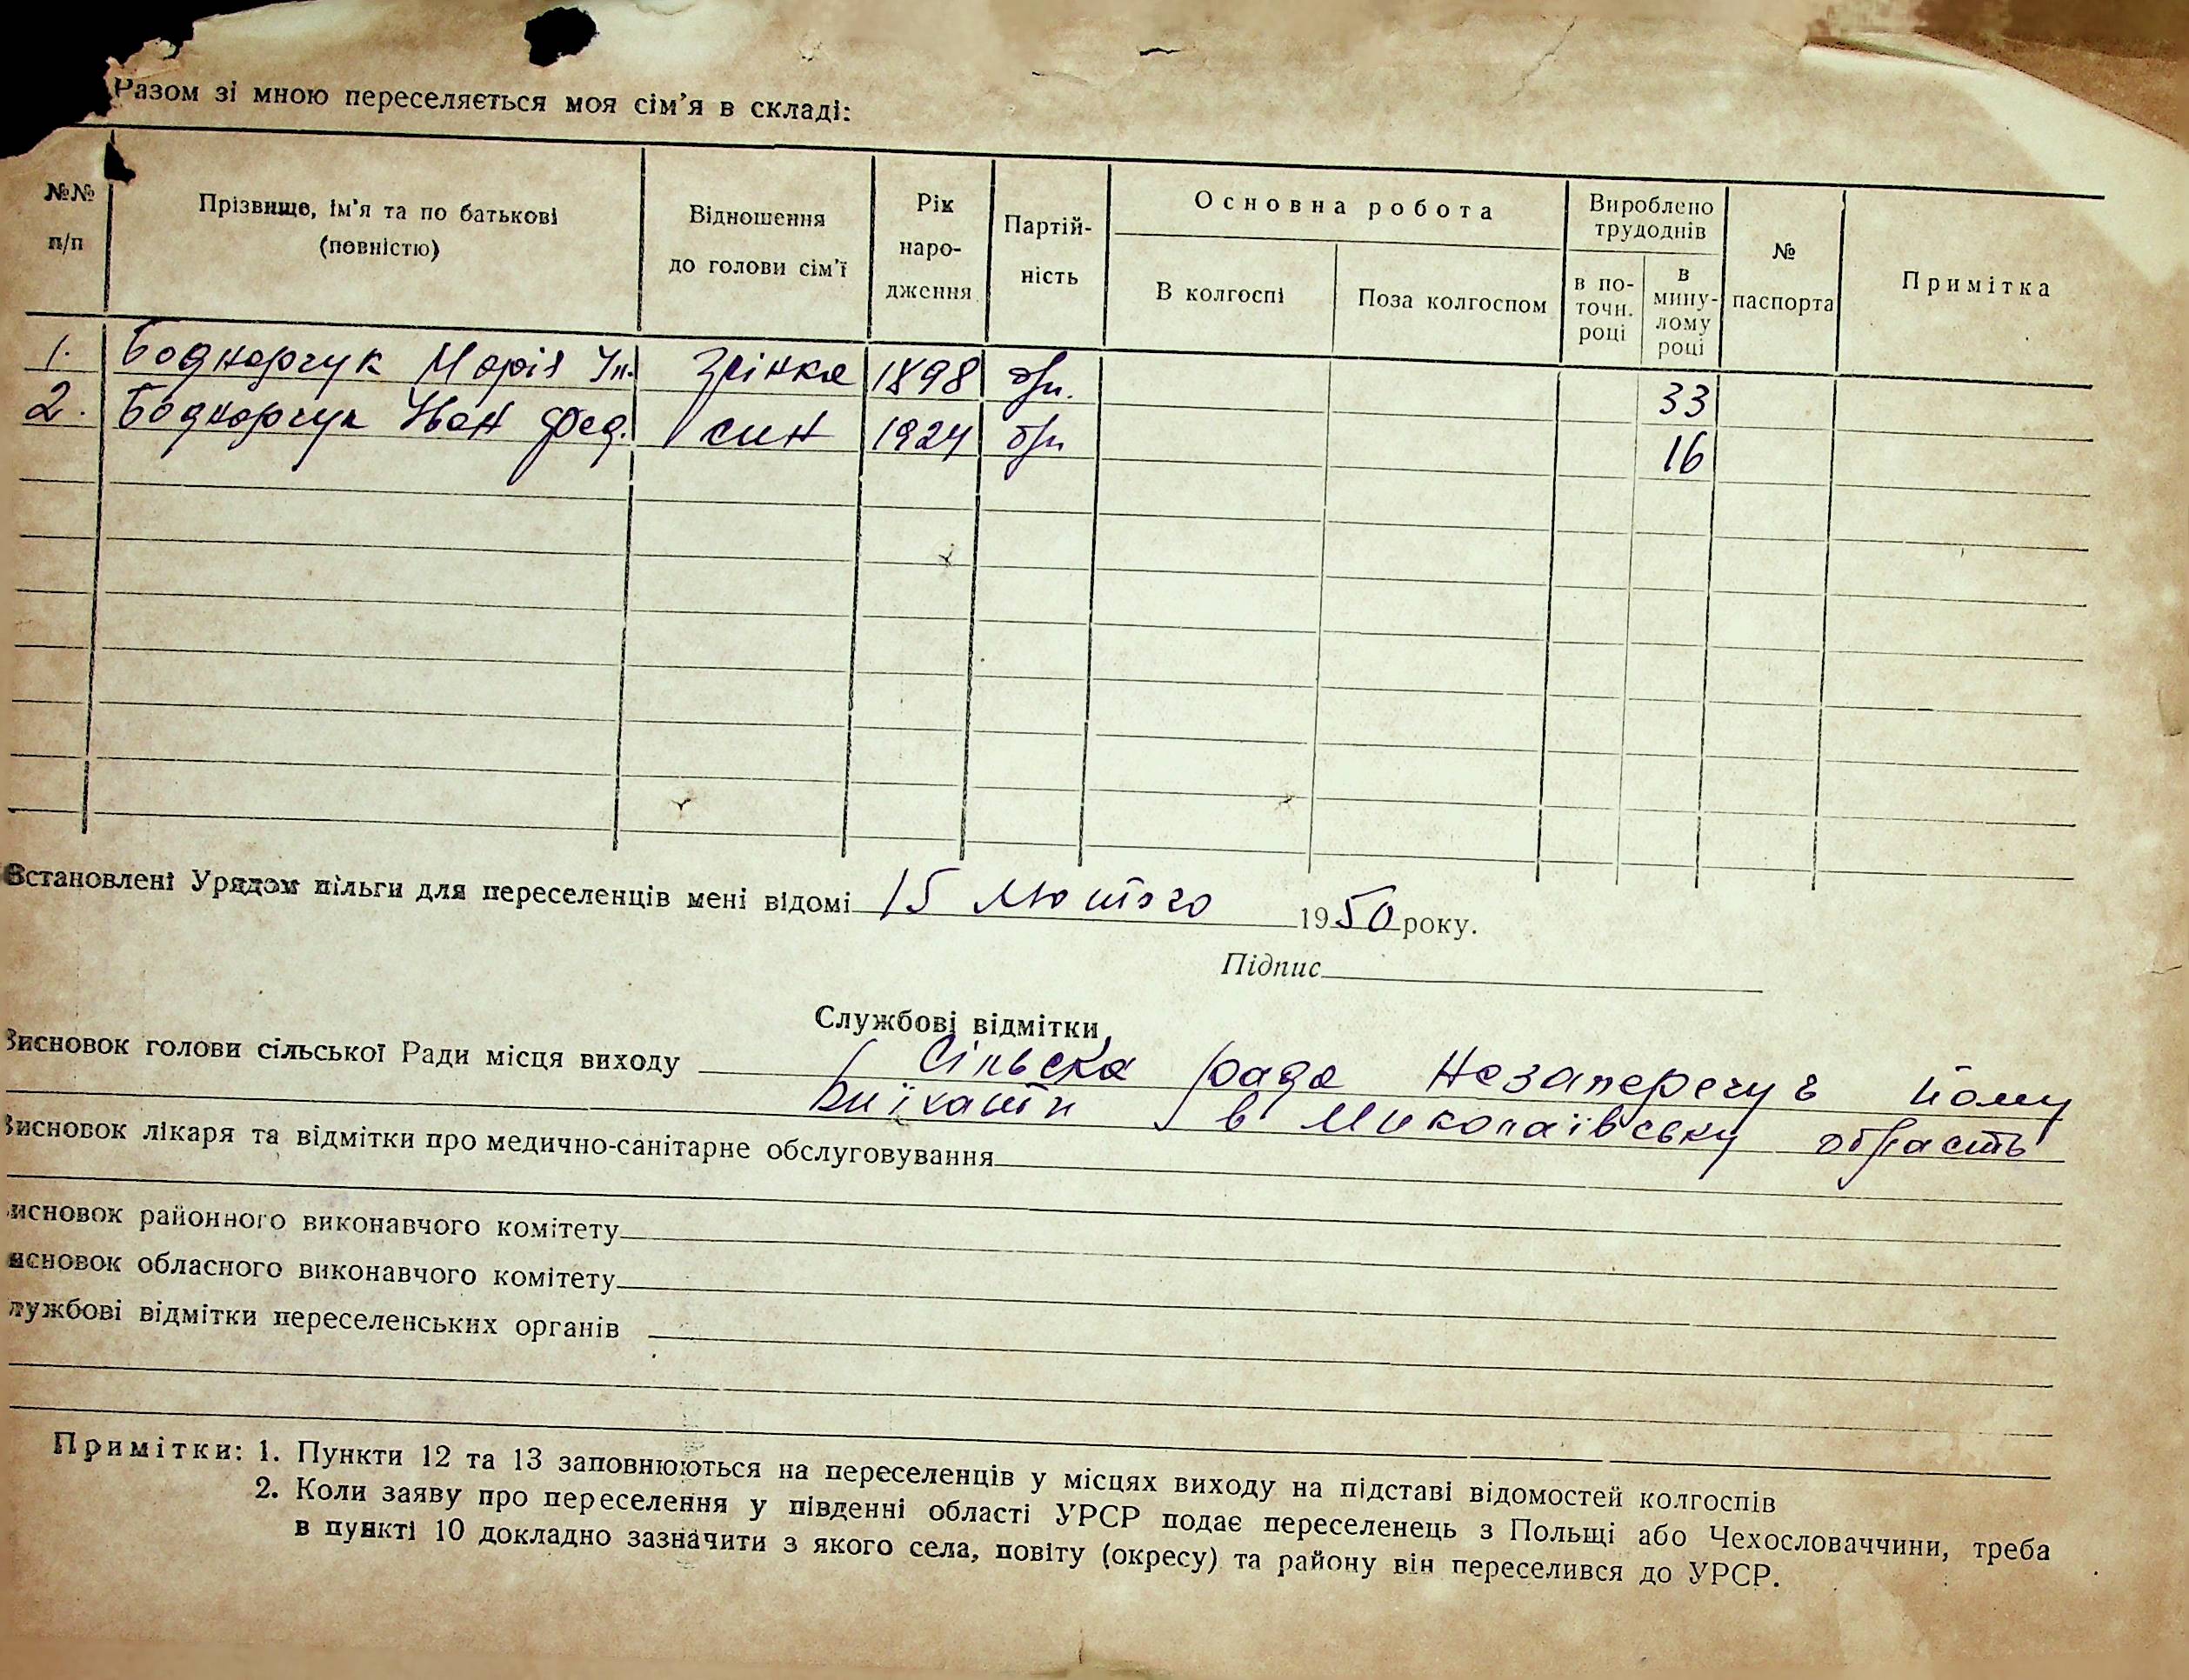 Разом зі мною переселяється моя сім'я в складі:
№№ п/п
Прізвище, ім'я та по батькові (повністю)
Відношення до голови сім'ї
Рік народження
Партійність
Основна робота
В колгоспі
Поза колгоспом
Вироблено трудоднів
в поточн. році
в минулому році
№ паспорта
Примітка
1. Боднарчук Марія Ів. жінка 1898 бп. 33
2. Боднарчук Іван Фед. син 1924 бп 16
Встановлені Урядом пільги для переселенців мені відомі 15 лютого 1950 року.
Підпис
Службові відмітки
Висновок голови сільської Ради місця виходу Сільска рада незаперечує йому
виїхати в Миколаївську область
Висновок лікаря та відмітки про медично-санітарне обслуговування
исновок районного виконавчого комітету
исновок обласного виконавчого комітету
лужбові відмітки переселенських органів
Примітки: 1. Пункти 12 та 13 заповнюються на переселенців у місцях виходу на підставі відомостей колгоспів
2. Коли заяву про переселення у південні області УРСР подає переселенець з Польщі або Чехословаччини, треба
в пункті 10 докладно зазначити з якого села, повіту (окресу) та району він переселився до УРСР.